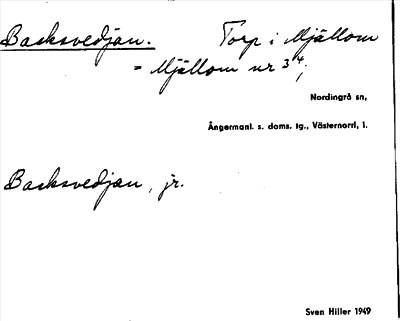 Backsvedjan. Torp i Mjällom
= Mjällom nr 3⁴;
Nordingrå sn,
Ångermanl. s. doms. tg., Västernorrl, l.
Backsvedjan, jr.
Sven Hiller 1949